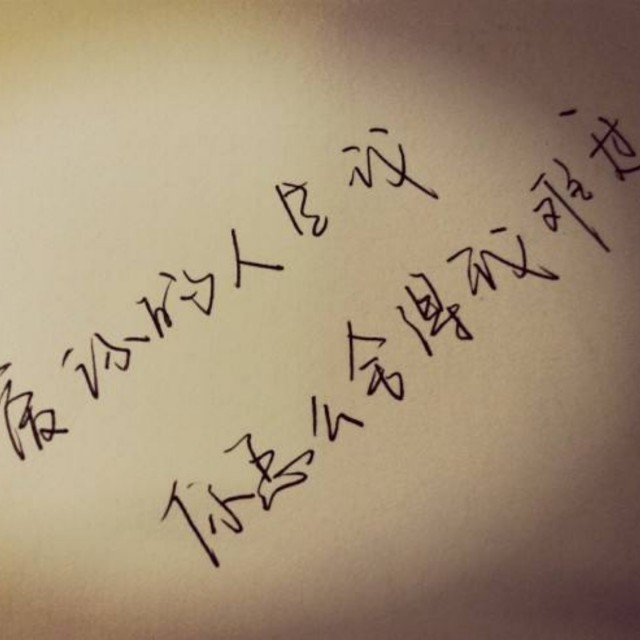 爱你的人是我
你怎么舍得我难过